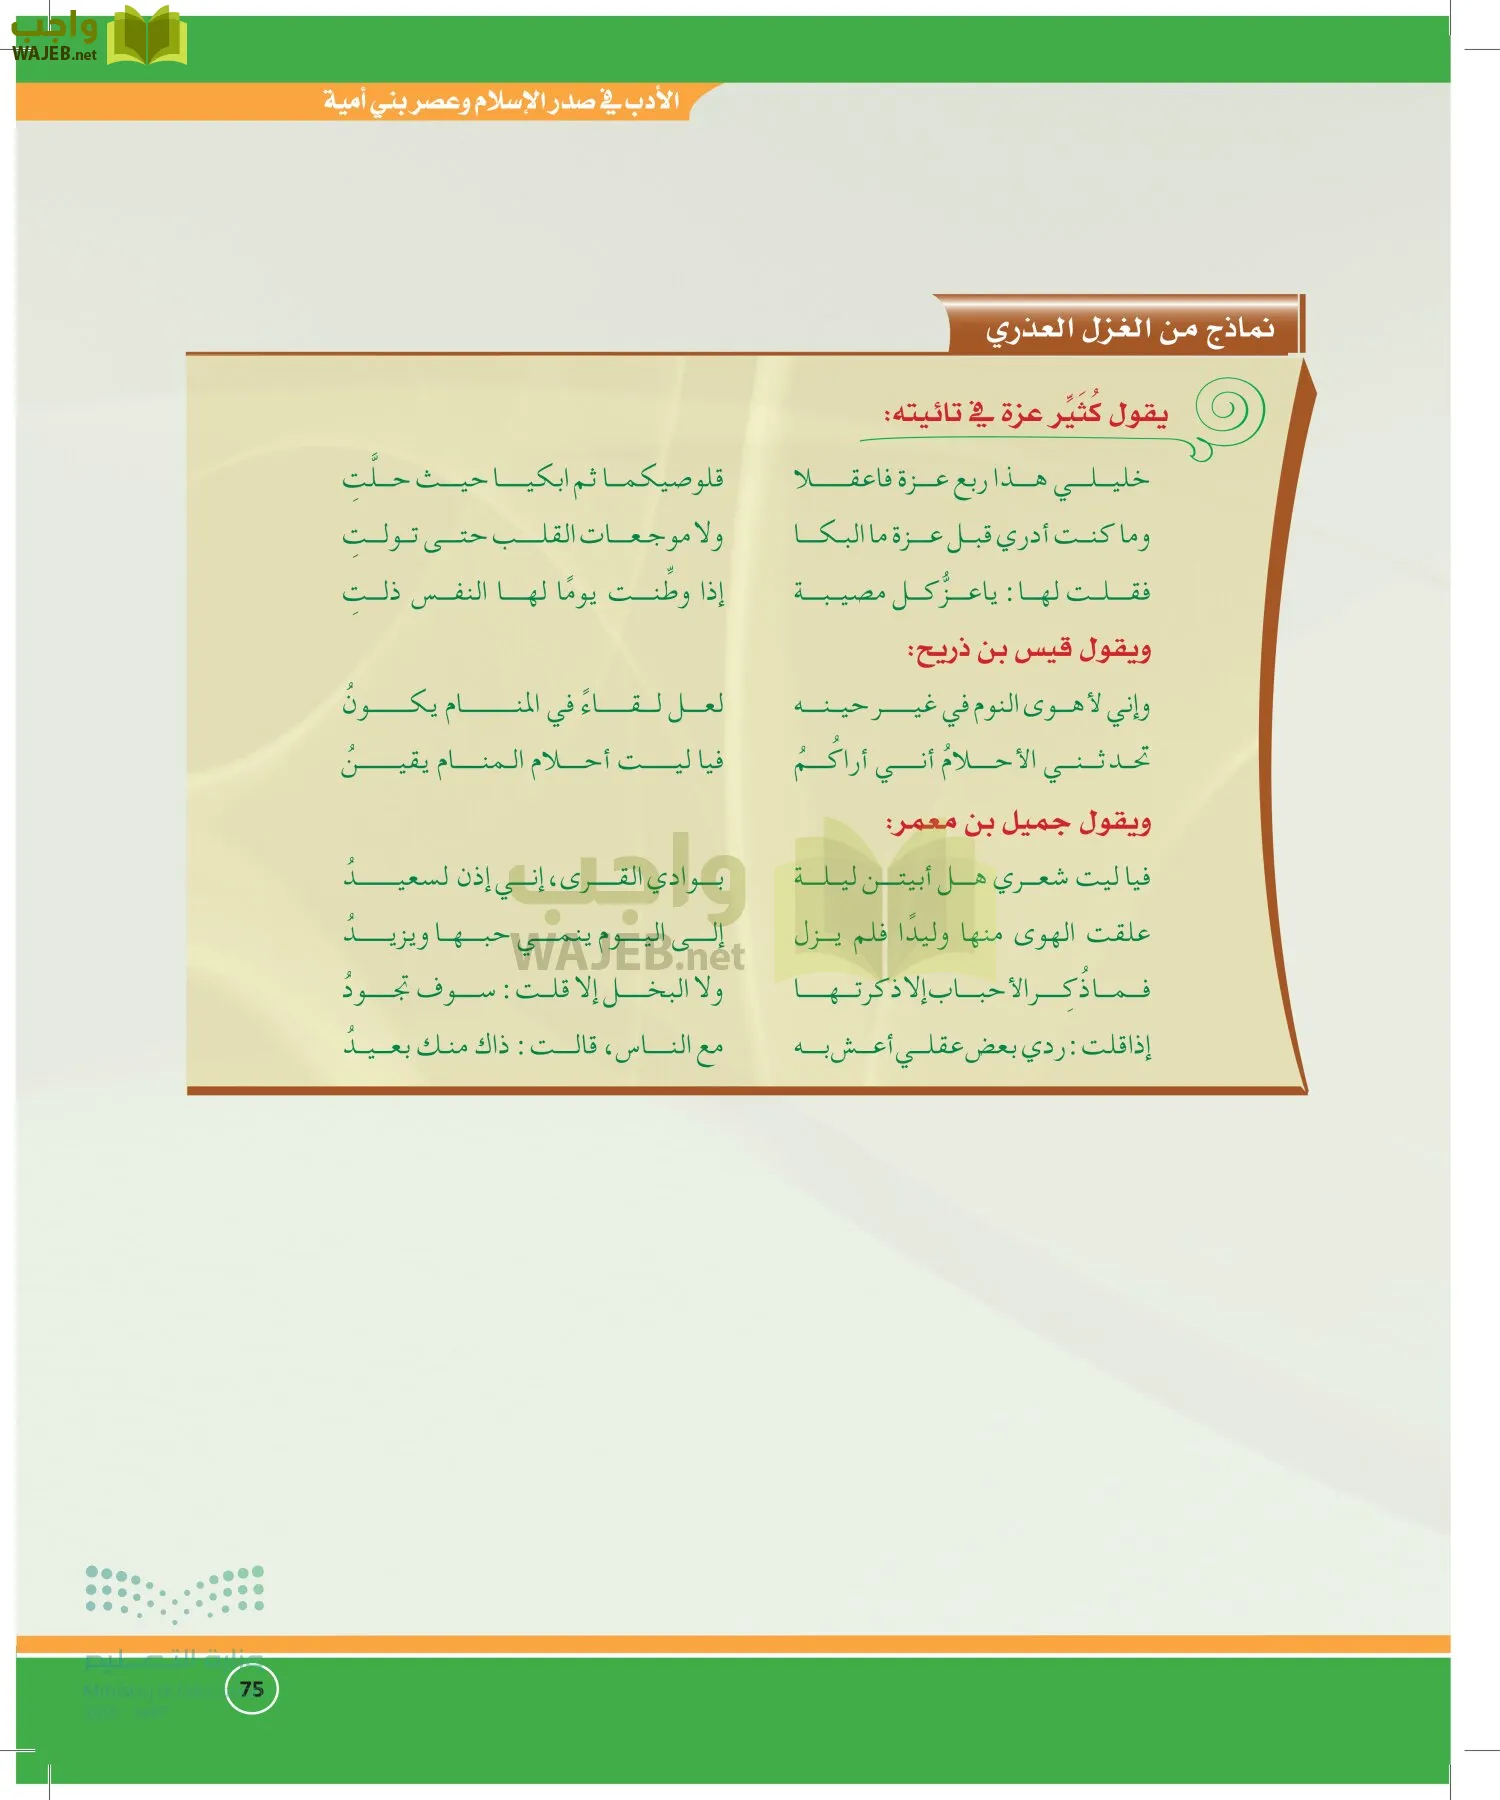 واجب
WAJEB.net
الأدب في صدر الإسلام وعصر بني أمية
نماذج من الغزل العذري
يقول كُثَيِّر عزة في تائيته:
خليلي هذا ربع عزة فاعقلا قلوصيكما ثم ابكيا حيث حلَّتِ
وما كنت أدري قبل عزة ما البكا ولا موجعات القلب حتى تولتِ
فقلت لها: يا عزُّ كل مصيبة إذا وطِّنت يومًا لها النفس ذلتِ
ويقول قيس بن ذريح:
وإني لأهوى النوم في غير حينه لعل لقاءً في المنام يكونُ
تحدثني الأحلامُ أني أراكُمُ فيا ليت أحلام المنام يقينُ
ويقول جميل بن معمر:
فيا ليت شعري هل أبيتن ليلة بوادي القرى، إني إذن لسعيدُ
علقت الهوى منها وليدًا فلم يزل إلى اليوم ينمي حبها ويزيدُ
فما ذُكِر الأحباب إلا ذكرتها ولا البخل إلا قلت: سوف تجودُ
إذا قلت: ردي بعض عقلي أعش به مع الناس، قالت: ذاك منك بعيدُ
واجب
WAJEB.net
وزارة التعليم
75